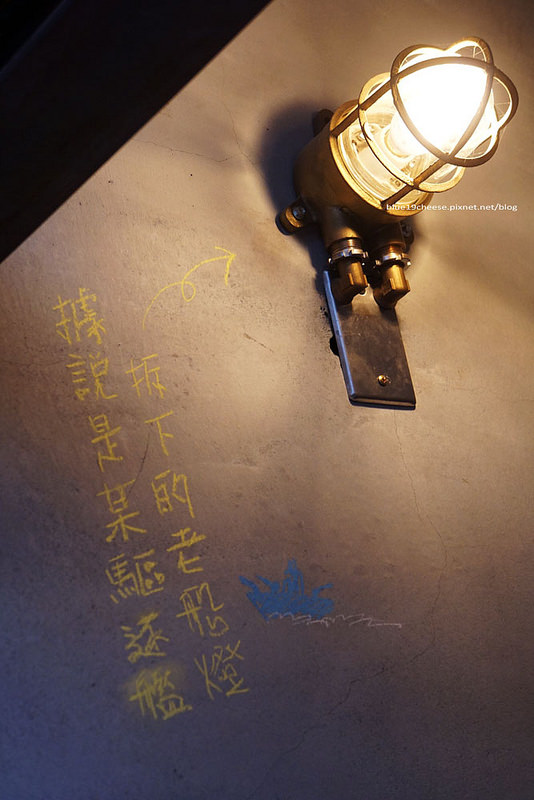 據說是某驅逐艦
拆下的老船燈
blue19cheese.pixnet.net/blog